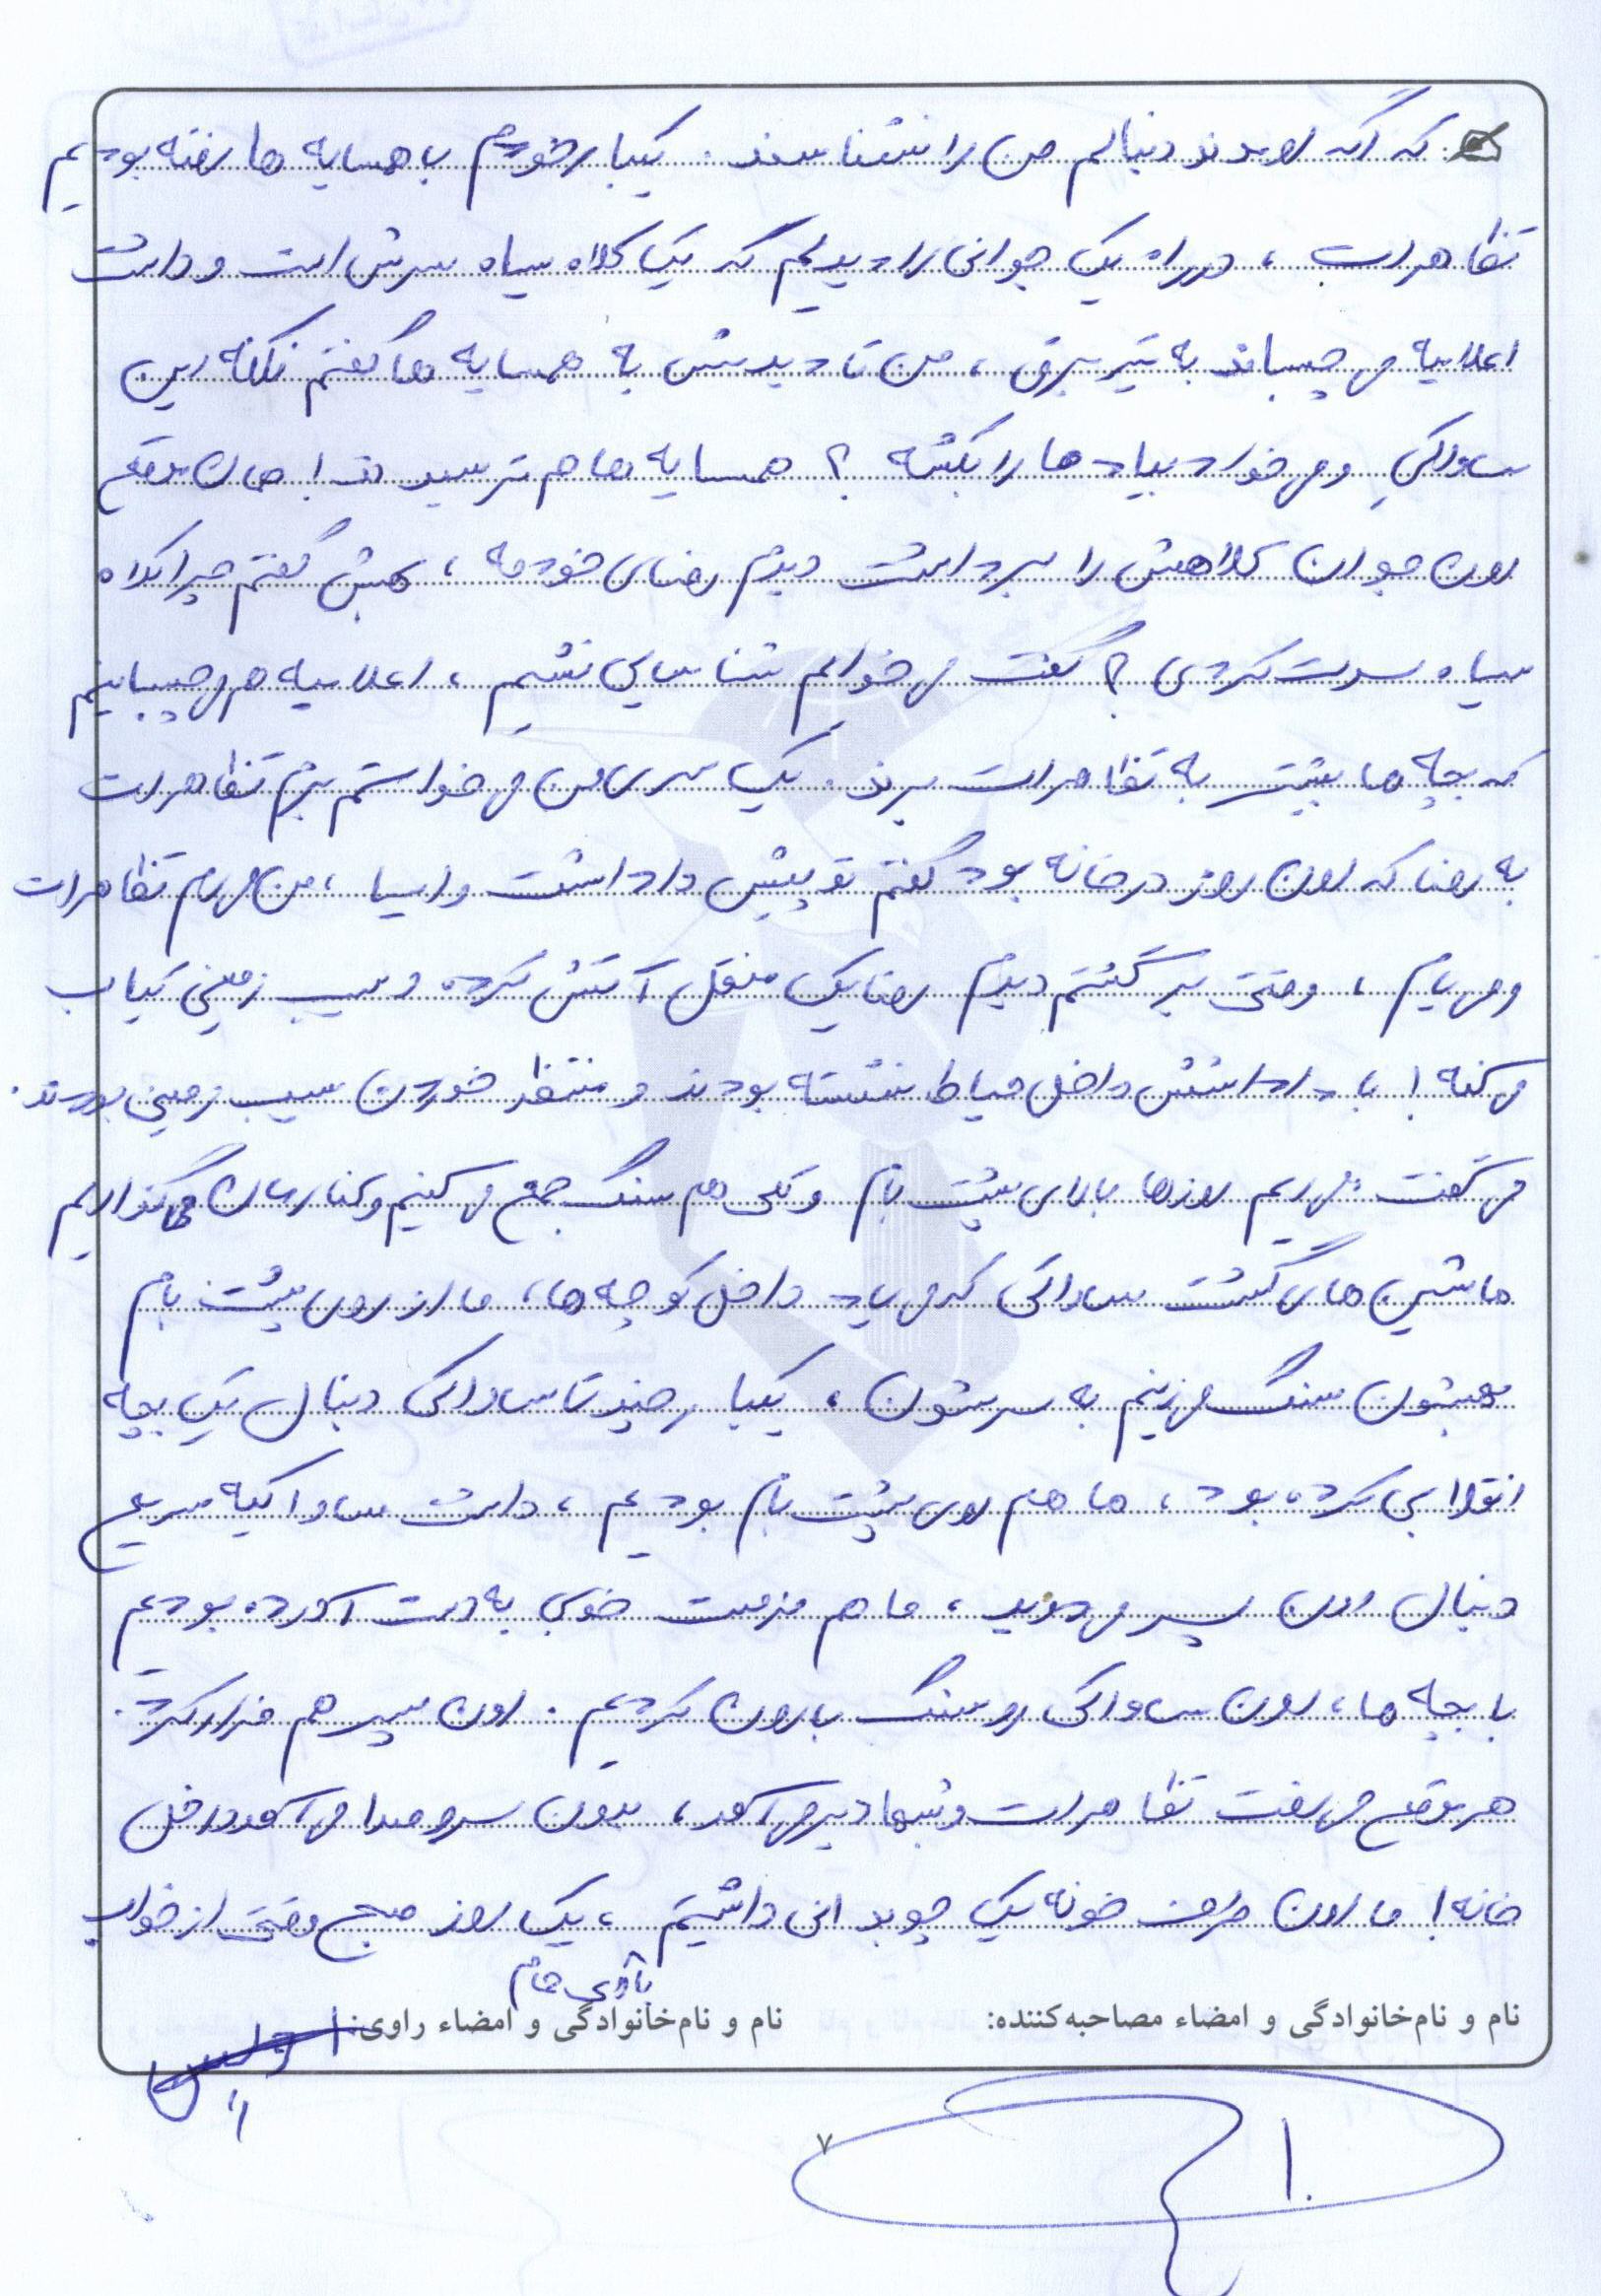 که اگه اومدند دنبالم من را نشناسند. یکبار خودم با همسایه ها رفته بودیم
تظاهرات، در راه یک جوانی را دیدیم که یک کلاه سیاه سرش است و داشت
اعلامیه می چسباند به تیر برق، من تا دیدمش به همسایه ها گفتم نکنه این
ساواکیِ و می خواد بیاد ما را بکشه؟ همسایه ها هم ترسیدند! همان موقع
اون جوان کلاهش را برداشت دیدم رضای خودمه، بهش گفتم چرا کلاه
سیاه سرت کردی؟ گفت می خوایم شناسایی نشیم، اعلامیه هم می چسبانیم
که بچه ها بیشتر به تظاهرات برند. یک سری من می خواستم برم تظاهرات
به رضا که اون روز در خانه بود گفتم تو پیش داداشت وایسا، من می رم تظاهرات
و می یام، وقتی برگشتم دیدم رضا یک منقل آتش کرده و سیب زمینی کباب
می کنه! با داداشش داخل حیاط نشسته بودند و منتظر خوردن سیب زمینی بودند.
می گفت: می ریم روزها بالای پشت بام و کلی هم سنگ جمع می کنیم و کنارمان می گذاریم
ماشین های گشت ساواکی که می یاد داخل کوچه ها، ما از روی پشت بام
بهشون سنگ می زنیم به سرشون، یکبار چند تا ساواکی دنبال یک بچه
انقلابی کرده بود، ما هم روی پشت بام بودیم، داشت ساواکیه سریع
دنبال اون پسر می دوید، ما هم فرصت خوبی به دست آورده بودیم
با بچه ها، اون ساواکی رو سنگ بارون کردیم. اون پسر هم فرار کرد.
هر موقع می رفت تظاهرات و شبها دیر می آمد، بدون سر و صدا می آمد داخل
خانه! ما اون طرف خونه یک چوبدانی داشتیم، یک روز صبح وقتی از خواب
نام و نام‌خانوادگی و امضاء مصاحبه‌کننده:
نام و نام‌خانوادگی و امضاء راوی:
۷